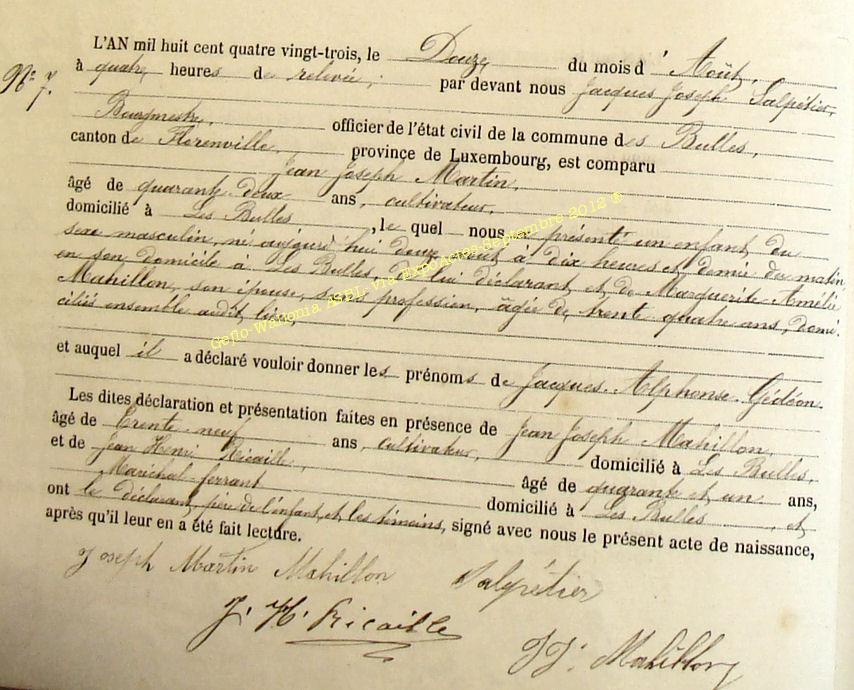 L'AN mil huit cent quatre vingt-trois, le Douze du mois d' Août,
N° 7.
à quatre heures de relevée, par devant nous Jacques Joseph Salpétier,
Bourgmestre, officier de l'état civil de la commune des Bulles,
canton de Florenville, province de Luxembourg, est comparu
Jean Joseph Martin,
âgé de quarante deux ans, cultivateur,
domicilié à Les Bulles, lequel nous présente un enfant du
sexe masculin, né aujourd'hui douze août à dix heures et demie du matin
en son domicile à Les Bulles, de lui déclarant et de Marguerite Amélie
Mahillon, son épouse, sans profession, âgée de trente quatre ans, domi-
ciliés ensemble audit lieu,
et auquel il a déclaré vouloir donner les prénoms de Jacques Alphonse Gédéon.
Les dites déclaration et présentation faites en présence de Jean Joseph Mahillon,
âgé de trente-neuf ans, cultivateur, domicilié à Les Bulles,
et de Jean Henri Ricaille, âgé de quarante et un ans,
Maréchal-ferrant domicilié à Les Bulles, et
ont le déclarant, père de l'enfant, et les témoins, signé avec nous le présent acte de naissance,
après qu'il leur en a été fait lecture.
Joseph Martin Mahillon Salpétier
J. H. Ricaille
J J. Mahillon
Geflo-Wallonia ASBL via ExpoActes Septembre 2012 ®